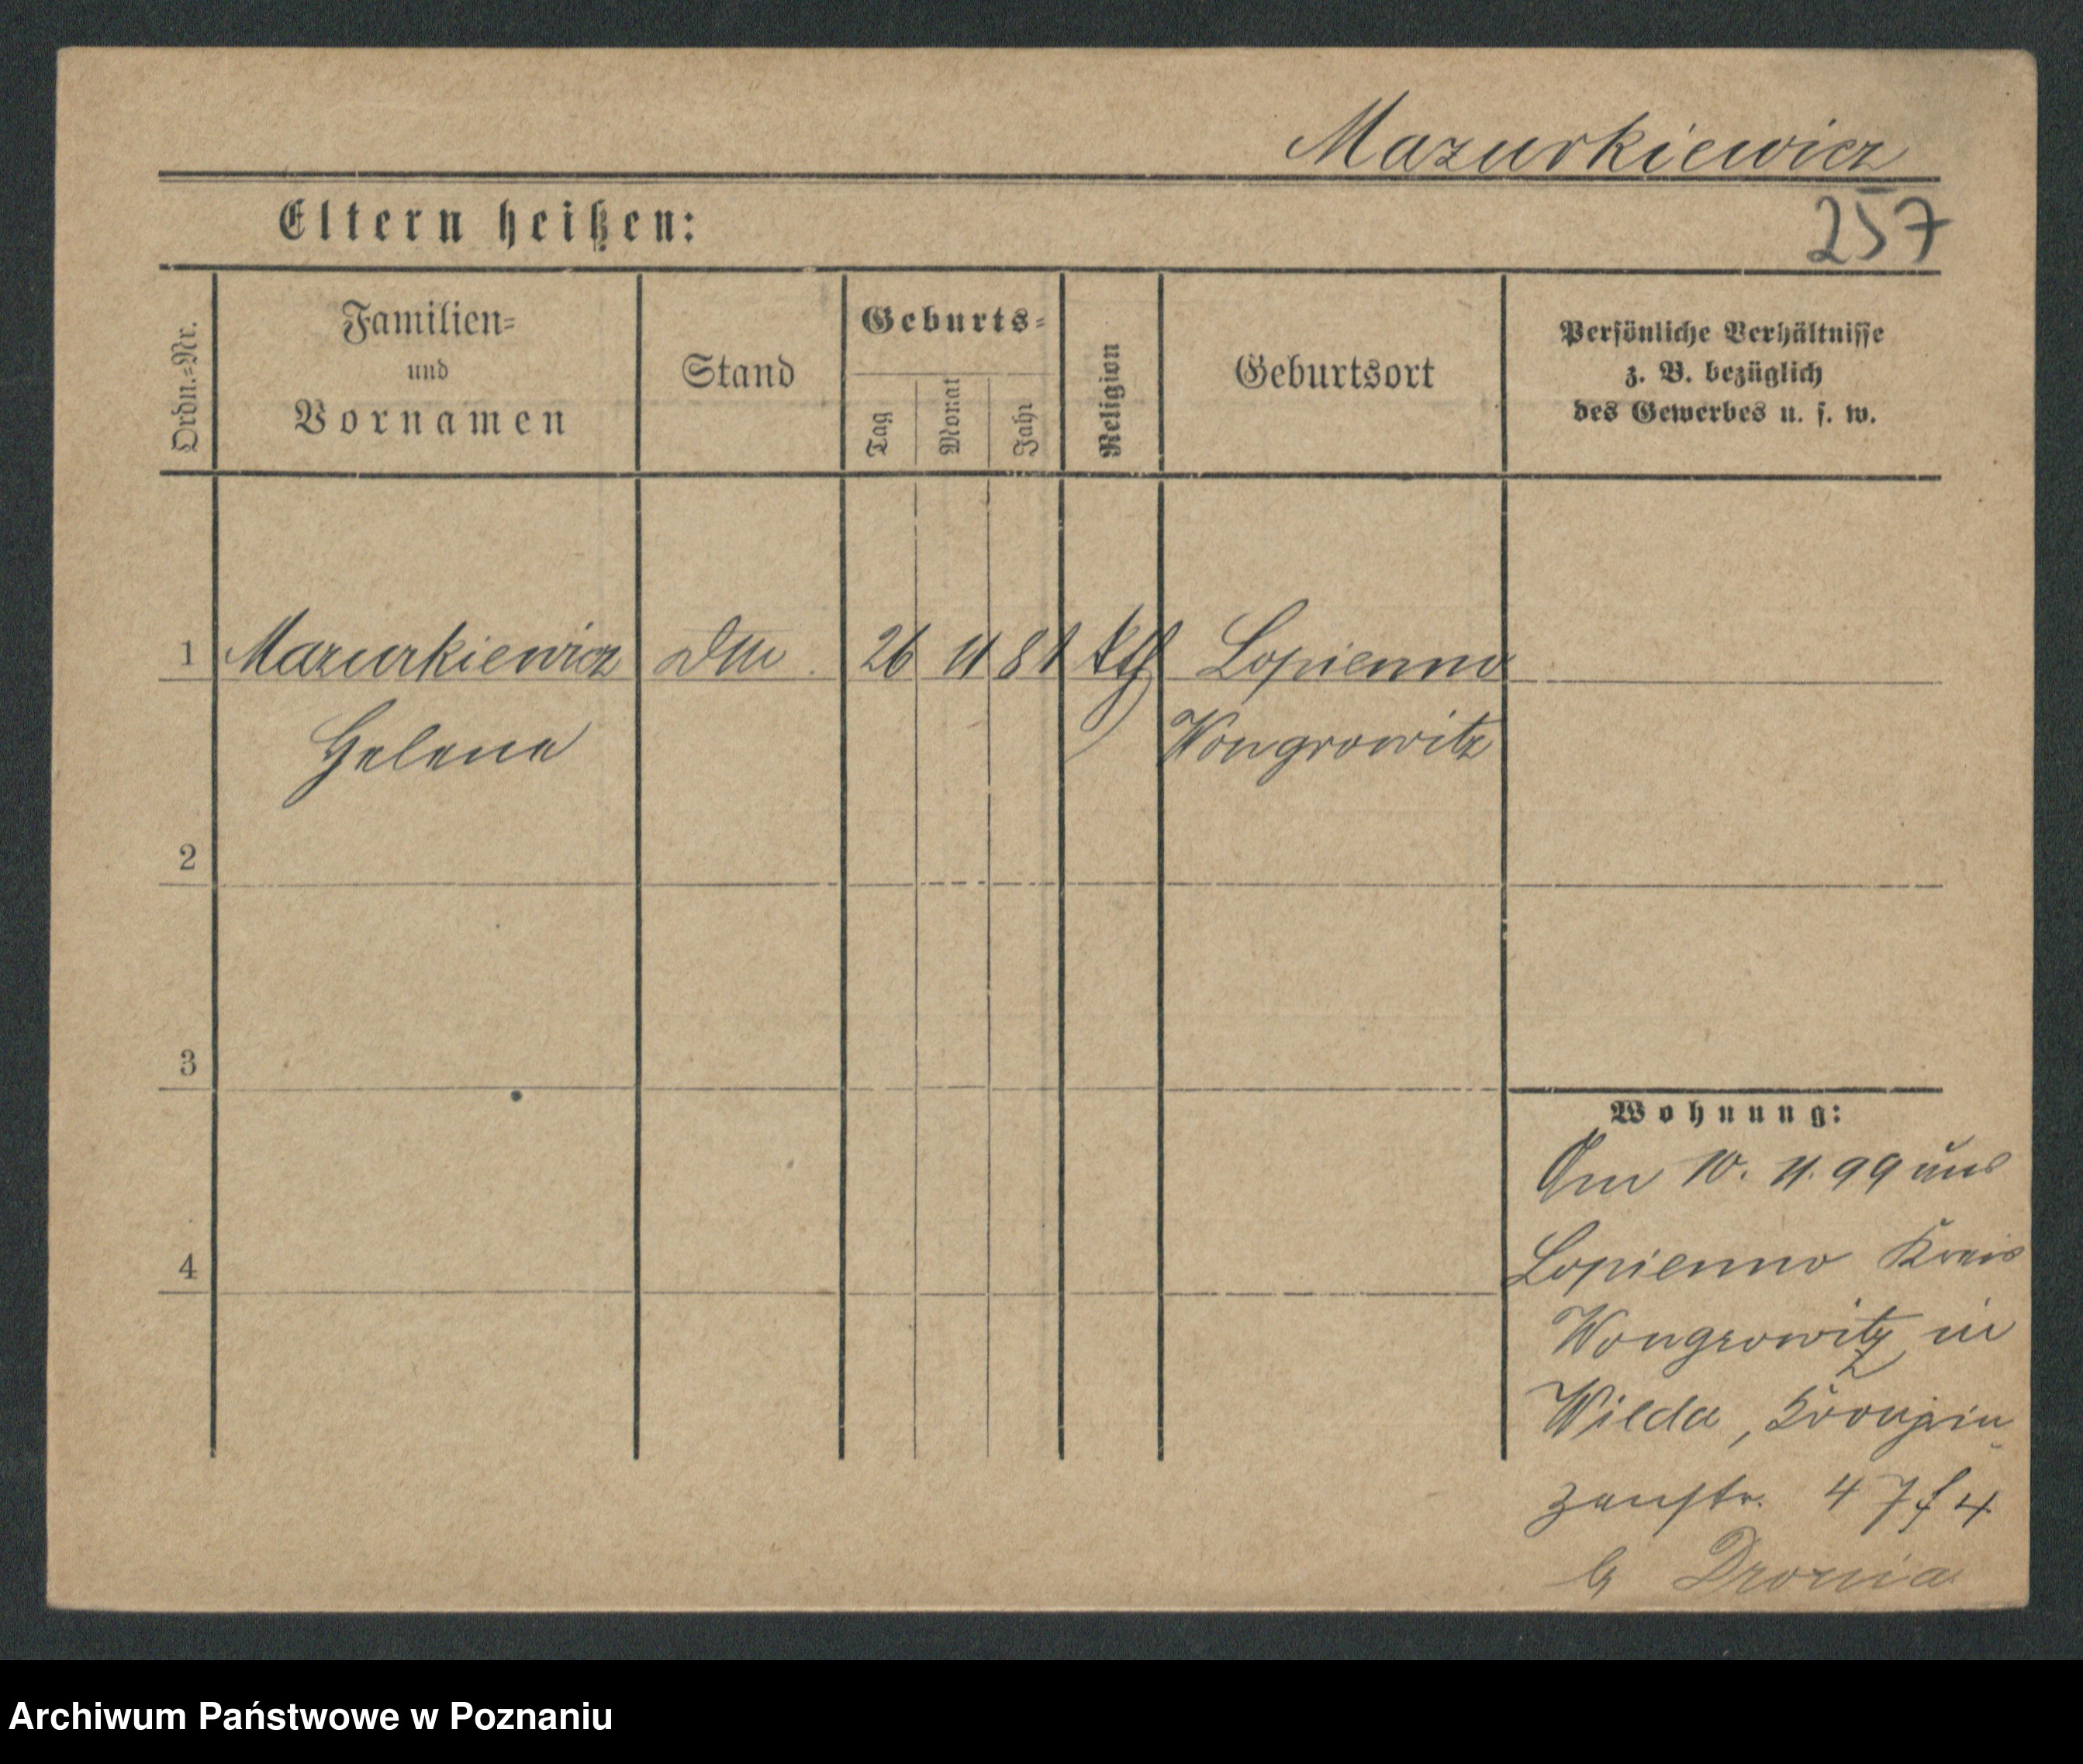 Mazurkiewicz
257
Eltern heißen:
Ordn.=Nr.
Familien=
und
Vornamen
Stand
Geburts=
Tag
Monat
Jahr
Religion
Geburtsort
Persönliche Verhältnisse
z. B. bezüglich
des Gewerbes u. s. w.
1 Mazurkiewicz 26 11 81 kth Lopienno
Helene Wongrowitz
2
3
4
Wohnung:
Am 10. 11. 99 aus
Lopienno Kreis
Wongrowitz in
Wilda, Kronprin
zenstr. 47
b Dronia
Archiwum Państwowe w Poznaniu